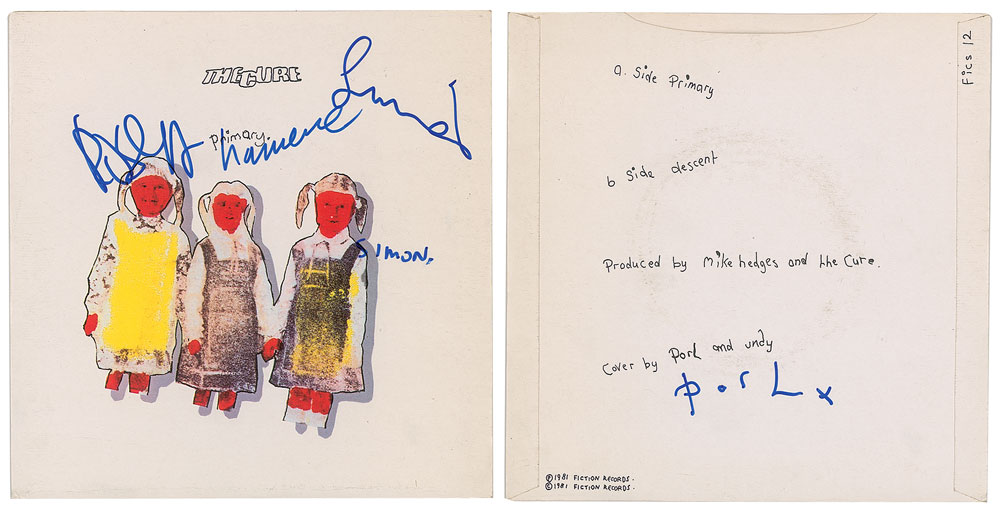 THE CURE
primary.
Simon.
Fics 12
a. Side Primary
b Side descent
Produced by Mike hedges and the Cure.
Cover by Porl and undy
porl x
℗ 1981 FICTION RECORDS.
© 1981 FICTION RECORDS.